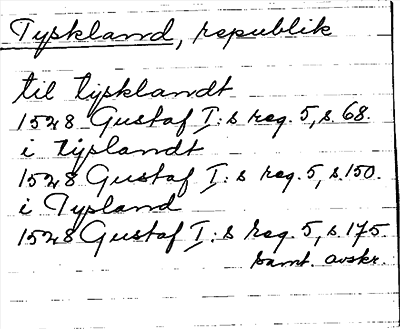 Tyskland, republik
til tijsklandt
1528 Gustaf I:s reg. 5, s. 68.
i tijslandt
1528 Gustaf I:s reg. 5, s. 150.
i Tysland
1528 Gustaf I:s reg. 5, s. 175.
samt. avskr.